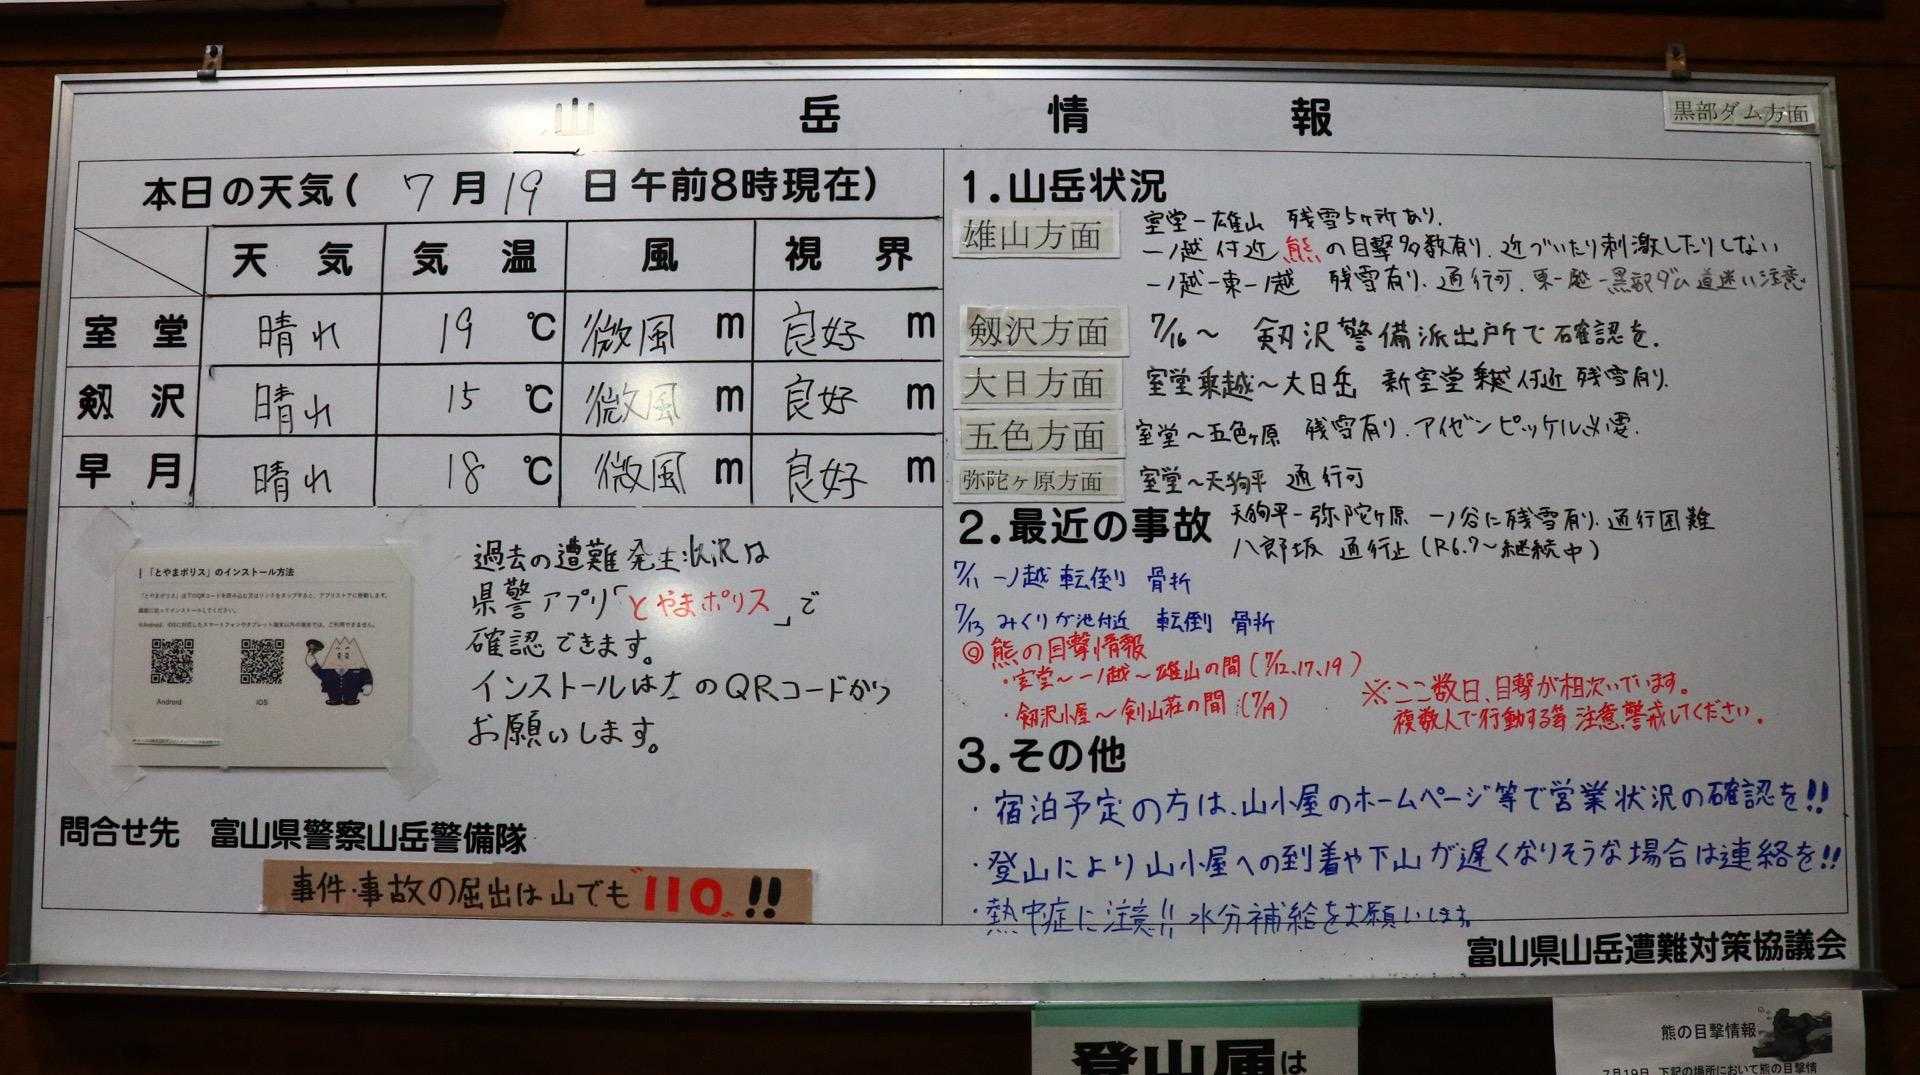 山岳情報
黒部ダム方面
本日の天気(7月19日午前8時現在)
天気 気温 風 視界
室堂 晴れ 19℃ 微風m 良好m
剱沢 晴れ 15℃ 微風m 良好m
早月 晴れ 18℃ 微風m 良好m
「とやまポリス」のインストール方法
Android
iOS
過去の遭難発生状況は
県警アプリ「とやまポリス」で
確認できます。
インストールは左のQRコードから
お願いします。
問合せ先 富山県警察山岳警備隊
事件・事故の届出は山でも"110"!!
1.山岳状況
雄山方面 室堂ー雄山 残雪5ヶ所あり.
一ノ越付近 熊の目撃多数有り.近づいたり刺激したりしない
一ノ越ー東一ノ越 残雪有り.通行可.東一越ー黒部ダム道迷い注意
剱沢方面 7/16〜 剱沢警備派出所で確認を.
大日方面 室堂乗越〜大日岳 新室堂乗越付近 残雪有り.
五色方面 室堂〜五色ヶ原 残雪有り.アイゼンピッケル必要.
弥陀ヶ原方面 室堂〜天狗平 通行可
天狗平ー弥陀ヶ原 一ノ谷に残雪有り.通行困難
八郎坂 通行止(R6.7〜継続中)
2.最近の事故
7/11 一ノ越 転倒 骨折
7/13 みくりが池付近 転倒 骨折
◎熊の目撃情報
・室堂〜一ノ越〜雄山の間(7/12.17.19)
・剱沢小屋〜剣山荘の間(7/19)
※ここ数日、目撃が相次いでいます。
複数人で行動する等 注意、警戒してください。
3.その他
・宿泊予定の方は、山小屋のホームページ等で営業状況の確認を!!
・登山により山小屋への到着や下山が遅くなりそうな場合は連絡を!!
・熱中症に注意!! 水分補給をお願いします。
富山県山岳遭難対策協議会
登山届は
熊の目撃情報
7月19日、下記の場所において熊の目撃情